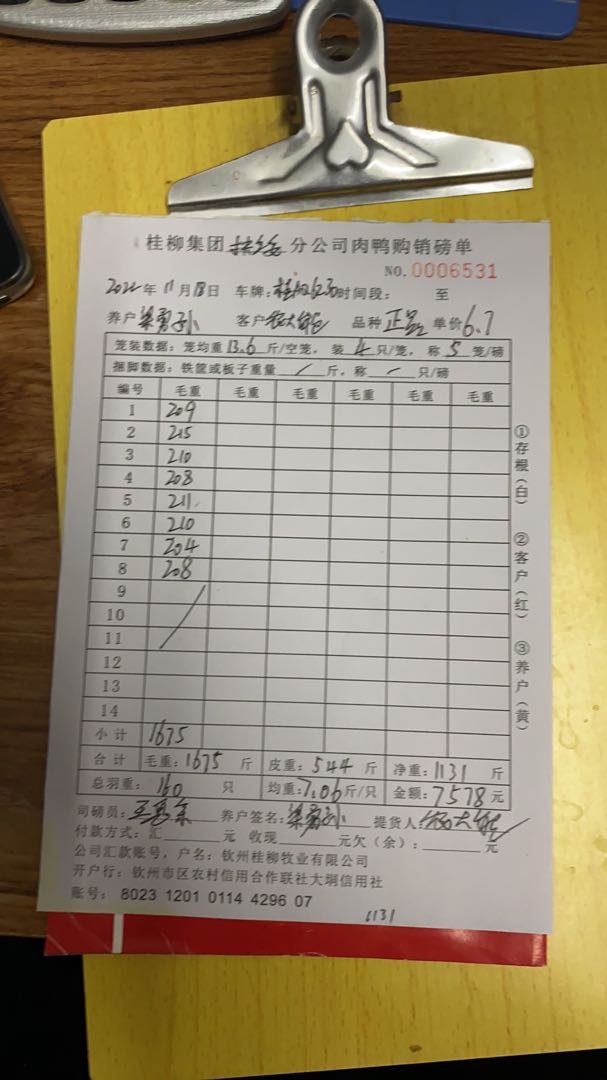 桂柳集团 分公司肉鸭购销磅单
NO.0006531
2022年11月18日 车牌: 时间段: 至
养户 梁勇孙 客户 品种 正品 单价6.7
笼装数据:笼均重13.6斤/空笼,装4只/笼,称5笼/磅
捆脚数据:铁筐或板子重量 / 斤,称 / 只/磅
编号 毛重 毛重 毛重 毛重 毛重 毛重
1 209
2 215
3 210
4 208
5 211
6 210
7 204
8 208
9
10
11
12
13
14
小计 1675
合计 毛重:1675斤 皮重:544斤 净重:1131斤
总羽重:160只 均重:7.06斤/只 金额:7578元
司磅员: 养户签名:梁勇孙 提货人:
付款方式:汇 元 收现 元欠(余): 元
公司汇款账号,户名:钦州桂柳牧业有限公司
开户行:钦州市区农村信用合作联社大垌信用社
账号: 8023 1201 0114 4296 07
1131
①存根(白) ②客户(红) ③养户(黄)